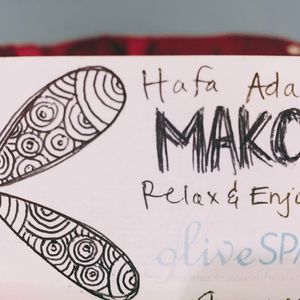 Hafa Ada
MAKO
Relax & Enjo
oliveSPA